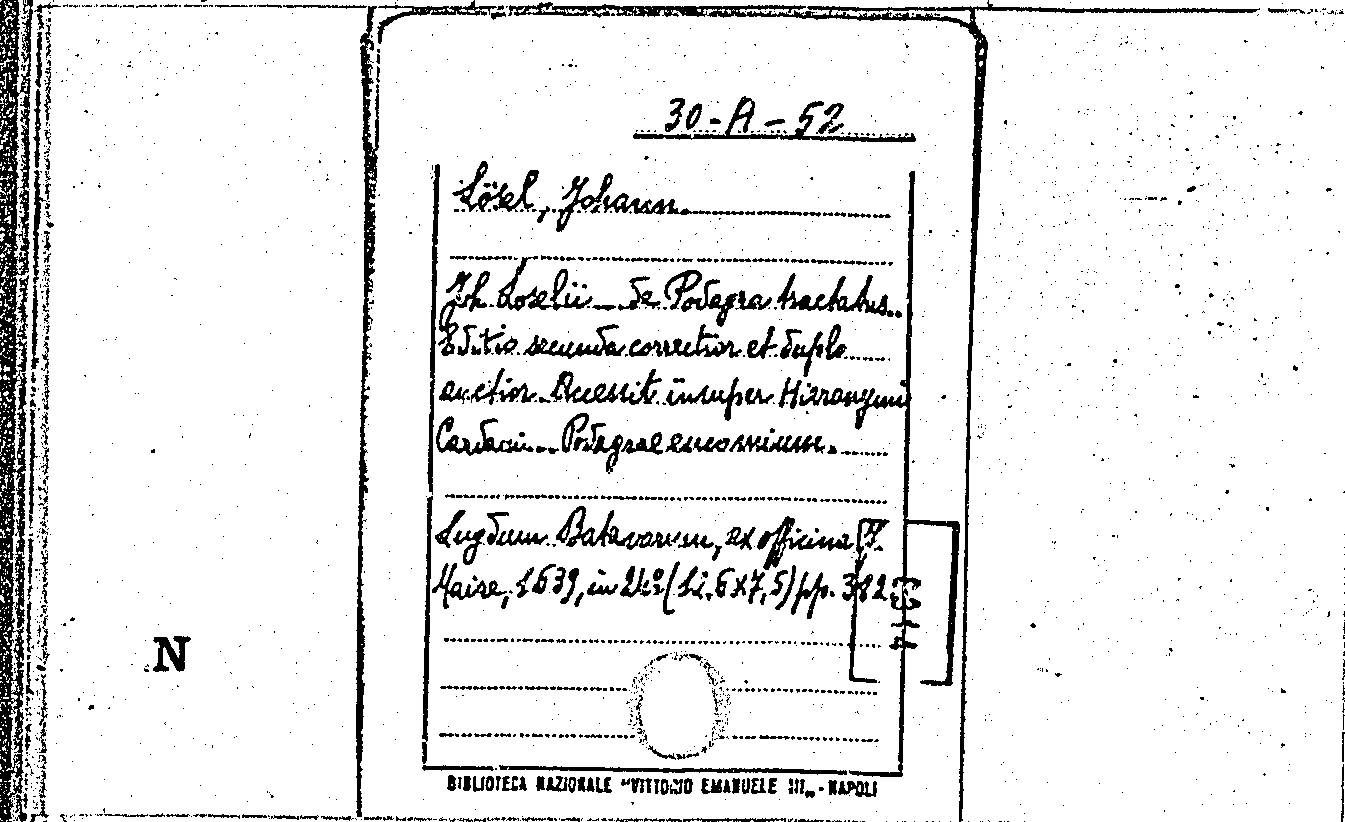 30-A-52
Lösel, Johann.
Joh Loselii ... de Podagra tractatus..
Editio secunda correctior et duplo
auctior. Accessit insuper Hieronymi
Cardani... Podagrae encomium.
Lugduni Batavorum, ex officina J.
Maire, 1639, in 24º (12,6x7,5) pp. 382.
N
BIBLIOTECA NAZIONALE "VITTORIO EMANUELE III„ - NAPOLI